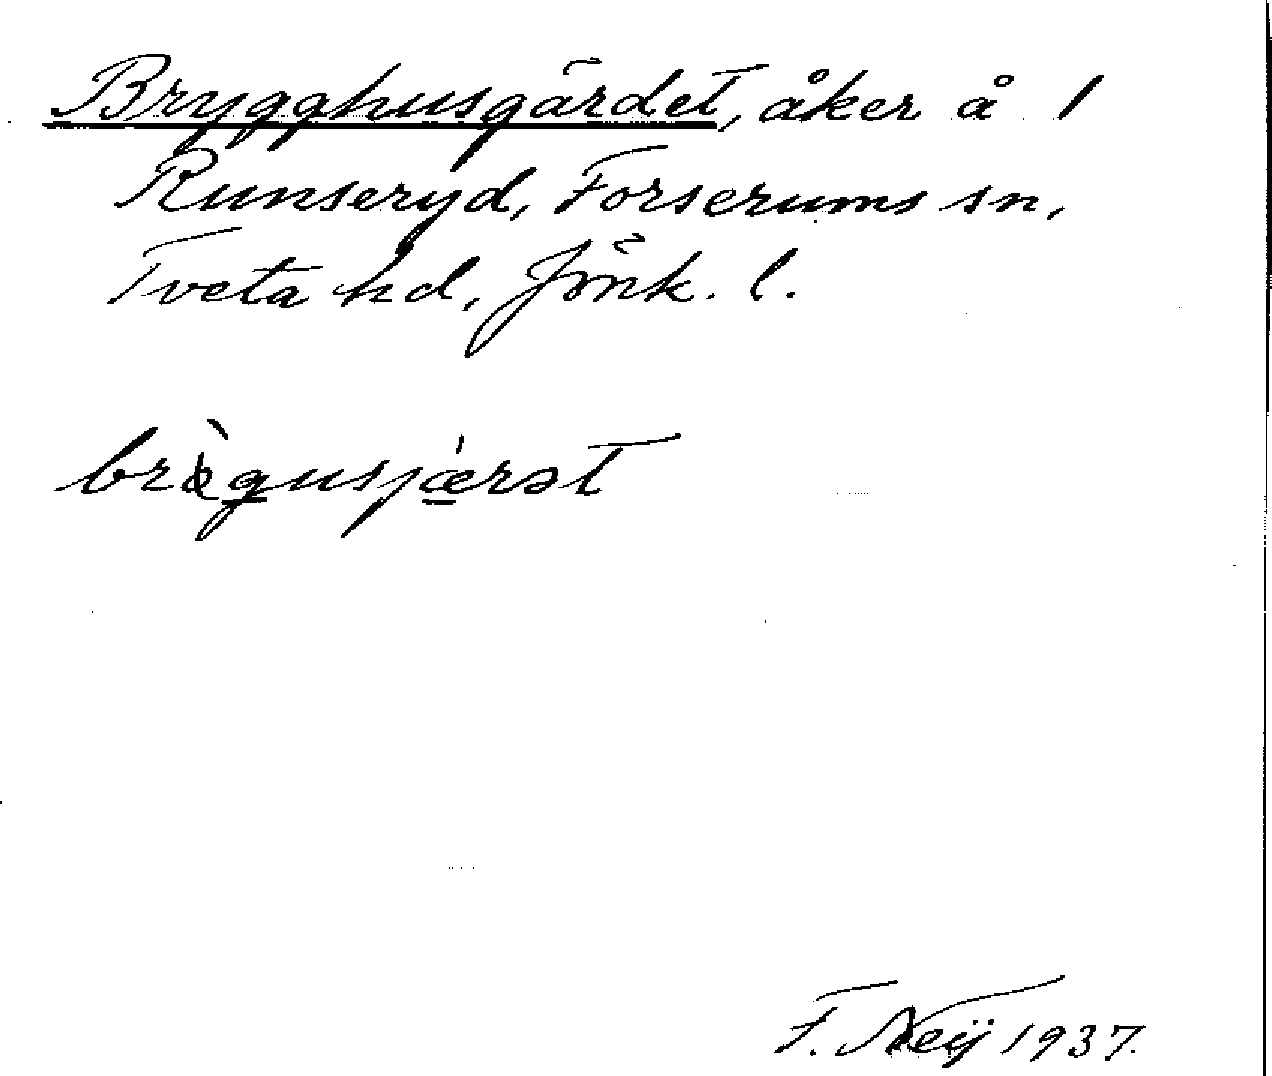 Brygghusgärdet, åker å 1
Runseryd, Forserums sn,
Tveta hd, Jönk. l.
F. Neÿ 1937.